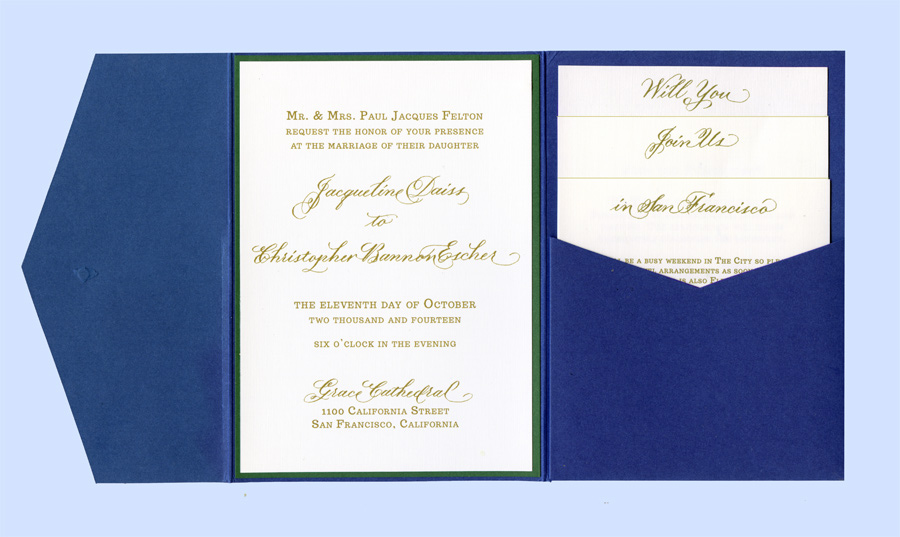 Mr. & Mrs. Paul Jacques Felton
request the honor of your presence
at the marriage of their daughter
Jacqueline Daiss
to
Christopher Bannon Escher
the eleventh day of October
two thousand and fourteen
six o'clock in the evening
Grace Cathedral
1100 California Street
San Francisco, California
Will You
Join Us
in San Francisco
be a busy weekend in The City so
arrangements as
is also